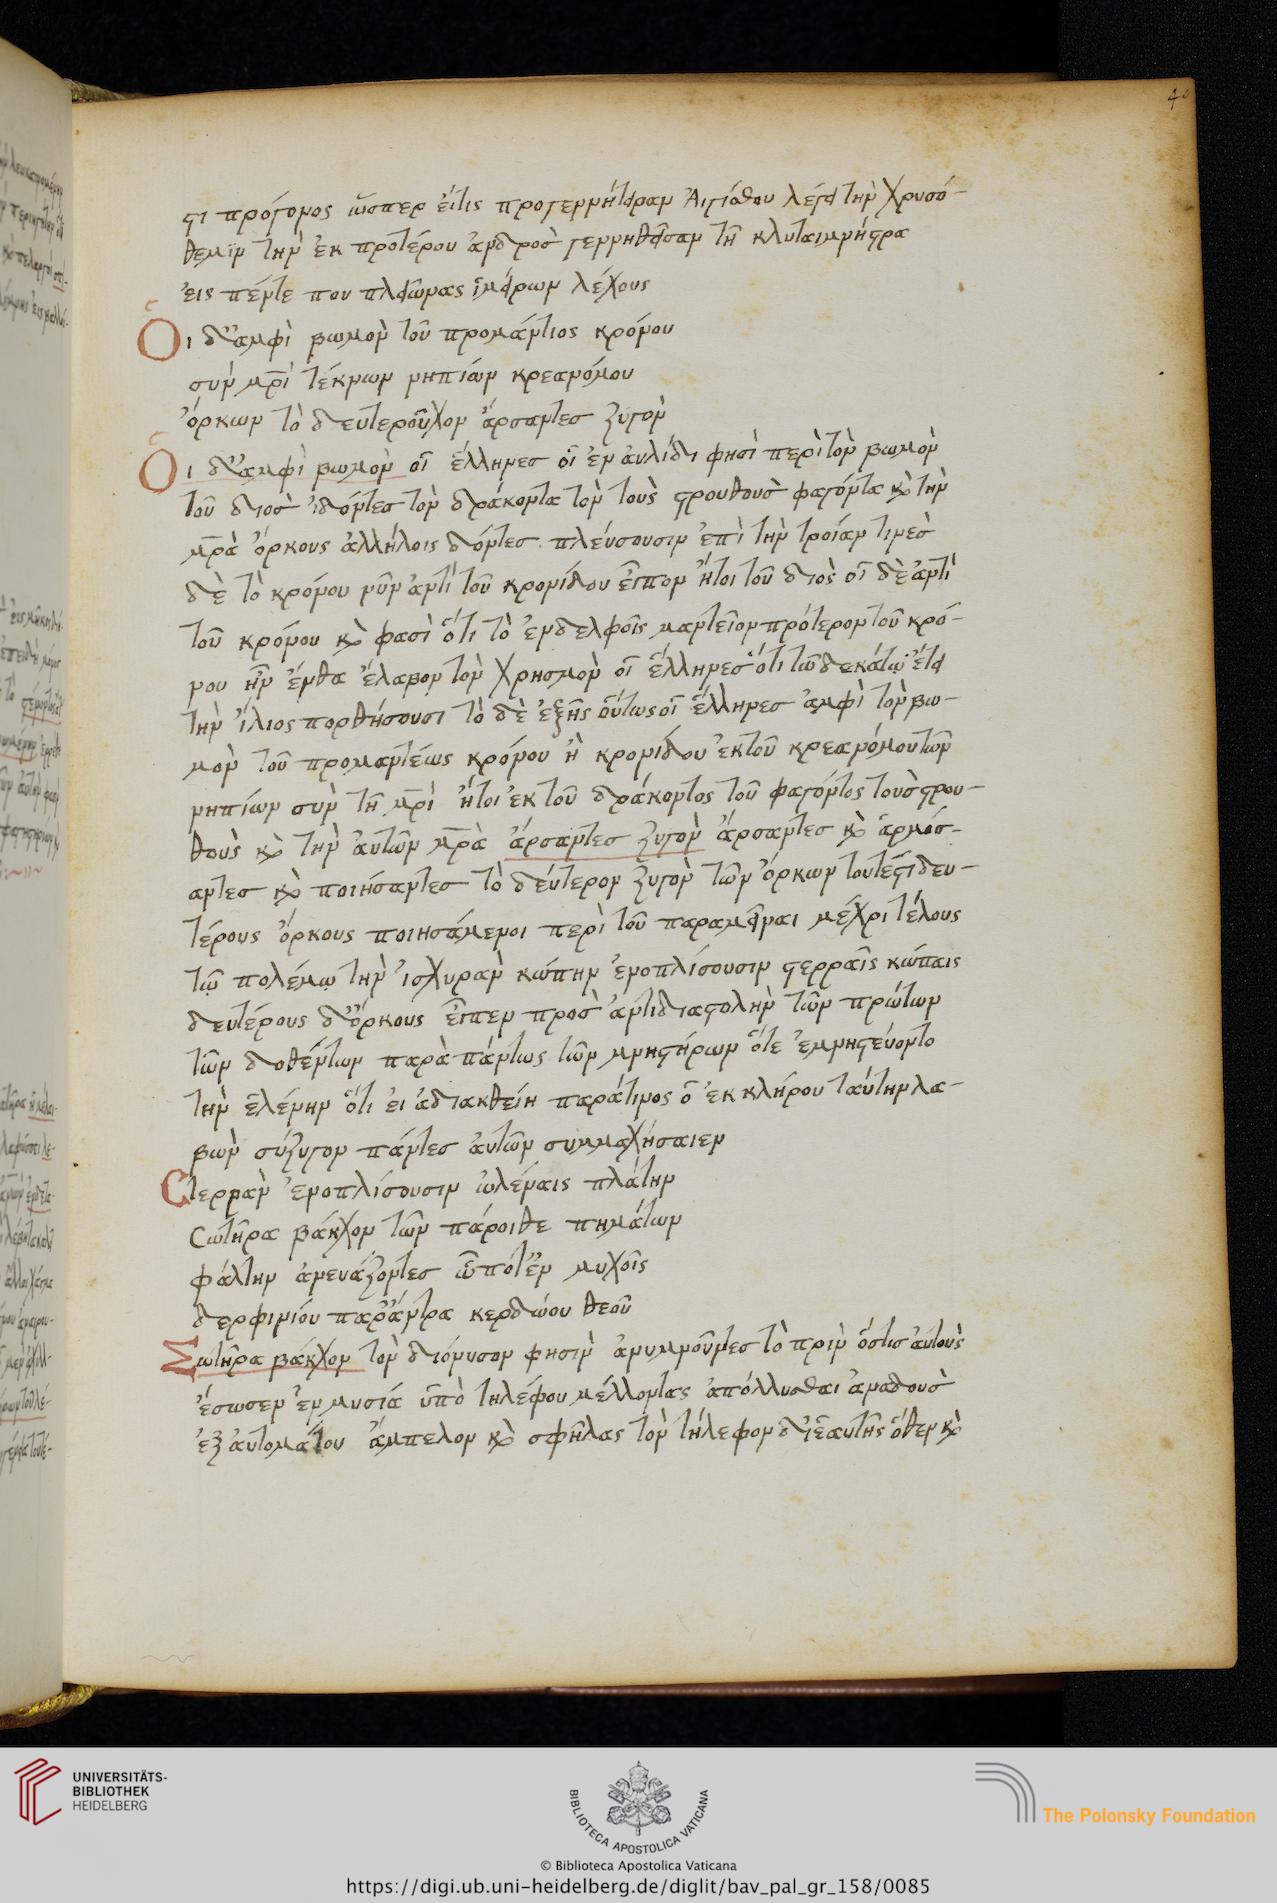 40
στι πρόγονος ὥσπερ εἴ τις προγεννήτειραν Αἰγιάθου λέγει τὴν Χρυσό-
θεμϊν τὴν ἐκ προτέρου ἀνδροσ γεννηθεῖσαν τῆ κλυταιμνήστρα
εἰς πέντε που πλειῶνας ἱμείρων λέχους
Οἱ δ' ἀμφὶ βωμὸν τοῦ προμάντιος κρόνου
συν μρὶ τέκνων νηπίων κρεανόμου
ὅρκων τὸ δευτεροῦχον ἄρσαντεσ ζυγὸν
Οἱ δ' ἀμφὶ βωμὸν οἱ ἕλληνεσ οἱ ἐν αὐλίδι φησὶ περὶ τὸν βωμὸν
τοῦ διοσ ἰδόντεσ τὸν δράκοντα τὸν τοὺς στρουθουσ φαγόντα κὶ τὴν
μρὰ ὅρκους ἀλλήλοις δόντεσ πλεύσουσιν ἐπὶ τὴν τροίαν τινεσ
δὲ τὸ κρόνου νῦν ἀντὶ τοῦ κρονίδου εἶπον ἤτοι τοῦ διὸς οἱ δὲ ἀντὶ
τοῦ κρόνου κὶ φασὶ ὅτι τὸ ἐν δελφοῖς μαντεῖον πρότερον τοῦ κρό-
νου ἦν ἔνθα ἔλαβον τὸν χρησμὸν οἱ ἕλληνεσ ὅτι τῶ δεκάτῳ ἔτει
τὴν ἴλιος πορθήσουσι τὸ δὲ ἑξῆς οὕτως οἱ ἕλληνεσ ἀμφὶ τὸν βω-
μὸν τοῦ προμαντέως κρόνου ἢ κρονίδου ἐκ τοῦ κρεανόμου τῶν
νηπίων συν τῆ μρὶ ἤτοι ἐκ τοῦ δράκοντος τοῦ φαγόντος τοὺσ στρου-
θοὺς κὶ τὴν αὐτῶν μρὰ ἄρσαντεσ ζυγὸν ἄρσαντεσ κὶ ἁρμόσ-
αντεσ κὶ ποιήσαντεσ τὸ δεύτερον ζυγὸν τῶν ὅρκων τουτέστι δευ-
τέρους ὅρκους ποιησάμενοι περὶ τοῦ παραμεῖναι μέχρι τέλους
τῷ πολέμῳ τὴν ἰσχυρὰν κώπην ἐνοπλίσουσιν στερραῖς κώπαις
δευτέρους δ' ὅρκους εἶπεν προσ ἀντιδιαστολὴν τῶν πρώτων
τῶν δοθέντων παρὰ πάντως τῶν μνηστήρων ὅτε ἐμνηστεύοντο
τὴν ἑλένην ὅτι εἰ ἀδιακθείη παράτινος ὁ ἐκ κλήρου ταύτην λα-
βὼν σύζυγον πάντεσ αὐτῶν συμμαχήσαιεν
Στερρὰν ἐνοπλίσουσιν ὠλέναις πλάτην
σωτῆρα βάκχον τῶν πάροιθε πημάτων
φάλτην ἀνευάζοντεσ ὧ ποτ' ἐν μυχοῖς
δερφινίου παρ' ἄντρα κερδώου θεοῦ
Σωτῆρα βάκχον τὸν διόνυσον φησὶν ἀνυμνοῦντεσ τὸ πρὶν ὅστισ αὐτοὺς
ἔσωσεν ἐν μυσία ὑπὸ τηλέφου μέλλοντας ἀπόλλυσθαι ἀναδουσ
ἐξ αὐτομάτου ἄμπελον κὶ σφῆλας τὸν τήλεφον δι' ἑαυτῆς ὅθεν κὶ
UNIVERSITÄTS-
BIBLIOTHEK
HEIDELBERG
BIBLIOTECA APOSTOLICA VATICANA
The Polonsky Foundation
© Biblioteca Apostolica Vaticana
https://digi.ub.uni-heidelberg.de/diglit/bav_pal_gr_158/0085